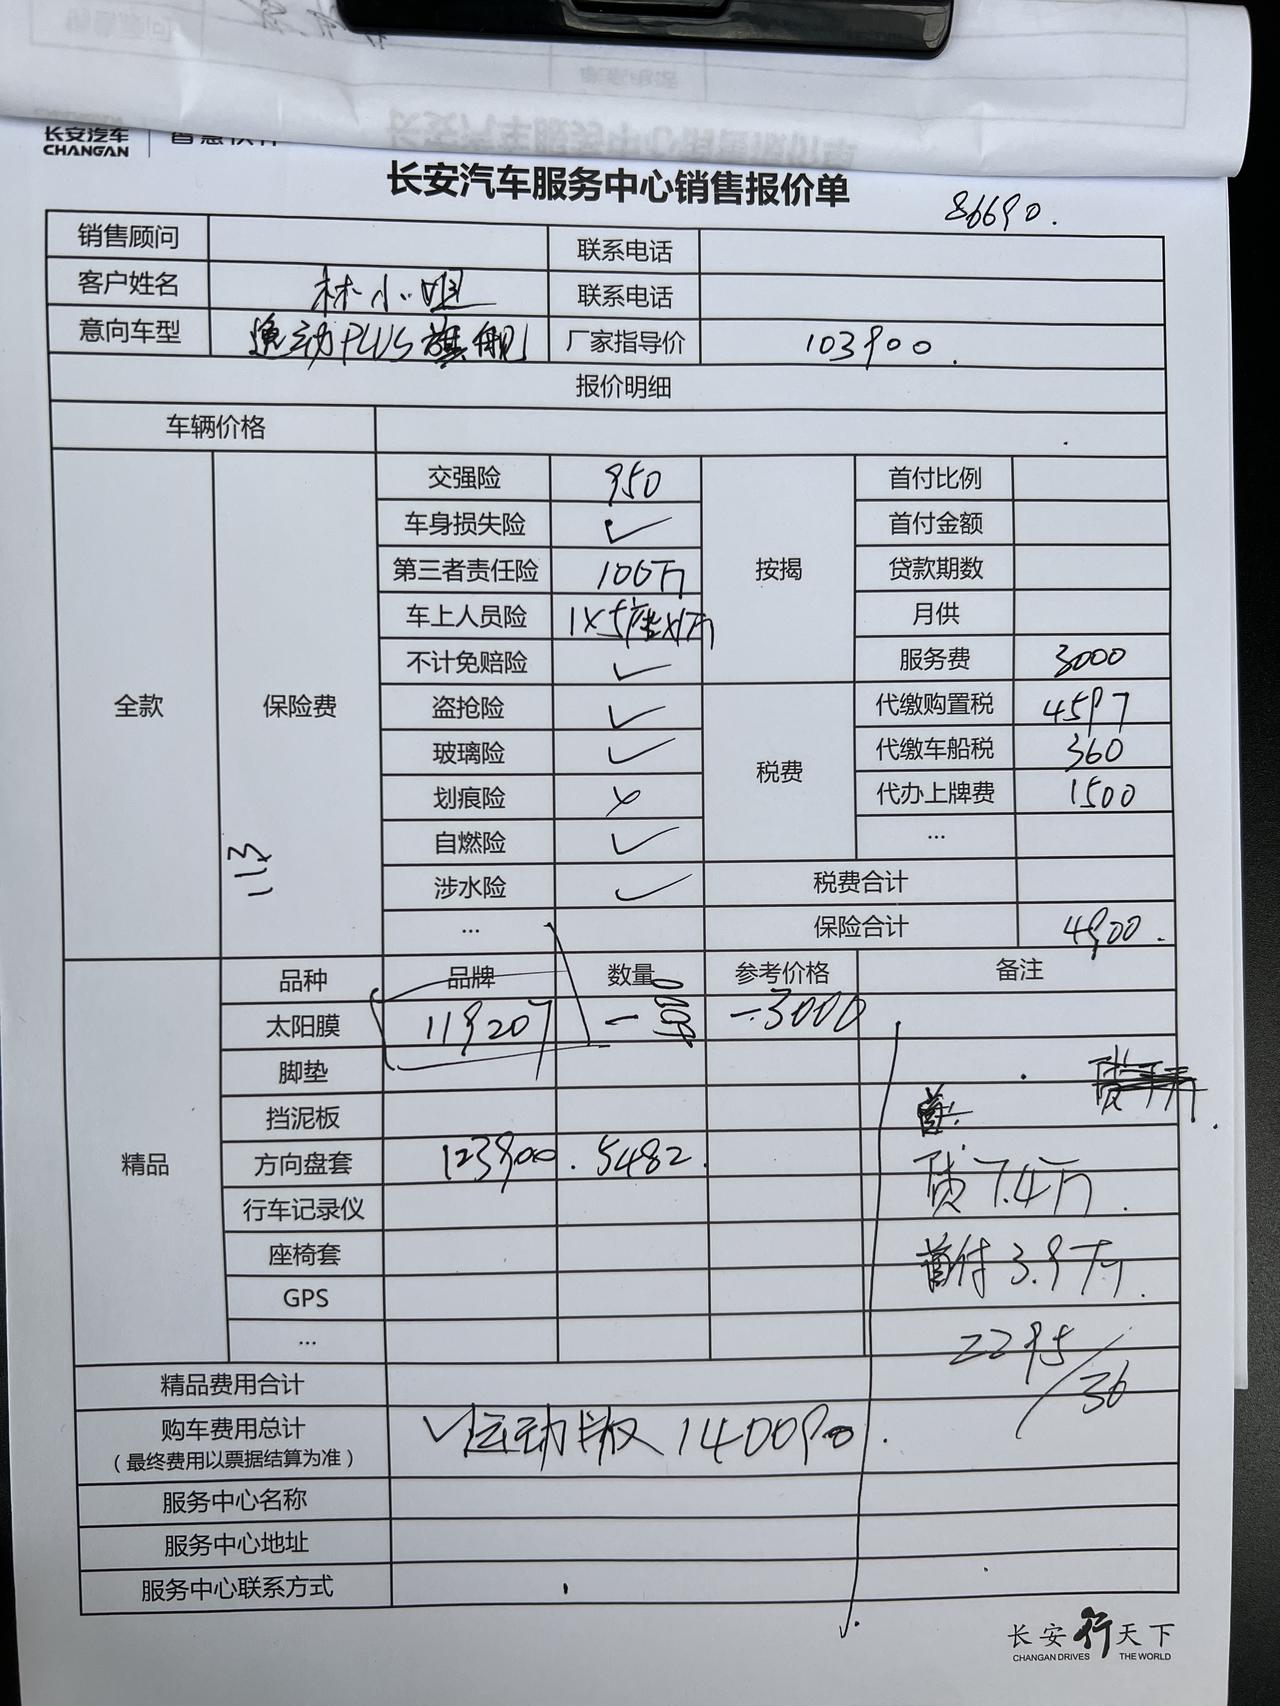 长安汽车
CHANGAN
长安汽车服务中心销售报价单
86690.
销售顾问 联系电话
客户姓名 林小姐 联系电话
意向车型 逸动PLUS旗舰 厂家指导价 103900.
报价明细
车辆价格
全款 保险费 交强险 950 按揭 首付比例
车身损失险 ✓ 首付金额
第三者责任险 100万 贷款期数
车上人员险 1×5座×1万 月供
不计免赔险 ✓ 服务费 3000
盗抢险 ✓ 税费 代缴购置税 4597
玻璃险 ✓ 代缴车船税 360
划痕险 × 代办上牌费 1500
自燃险 ✓ …
涉水险 ✓ 税费合计
113
… 保险合计 4900.
精品 品种 品牌 数量 参考价格 备注
太阳膜 119207 -3000
脚垫
挡泥板
方向盘套 123900. 5482. 贷7.4万.
行车记录仪
座椅套 首付3.9万.
GPS
… 2295/36
精品费用合计
购车费用总计 ✓运动版 140090.
(最终费用以票据结算为准)
服务中心名称
服务中心地址
服务中心联系方式
长安行天下
CHANGAN DRIVES THE WORLD